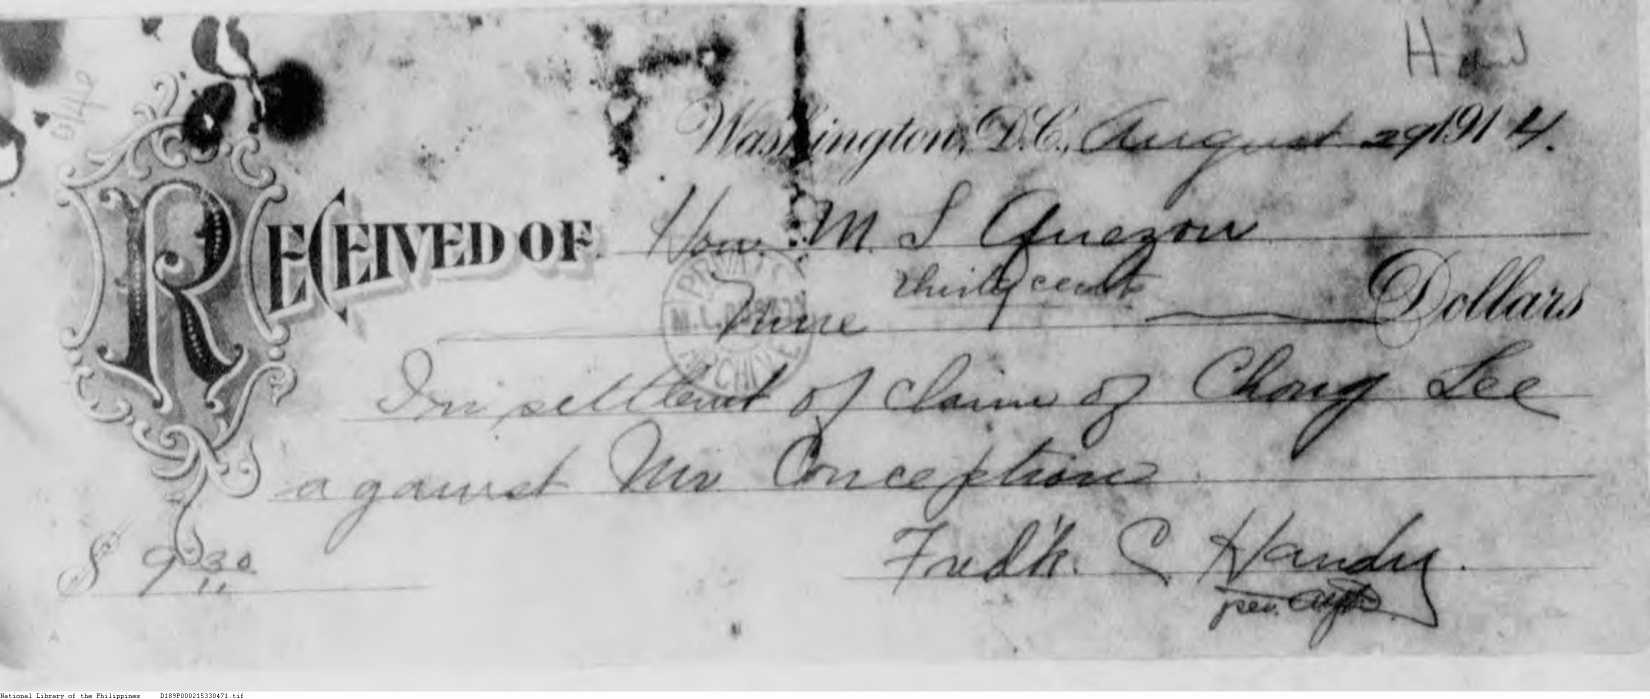 Washington, D.C., August 29 1914.
RECEIVED OF Hon. M. S Quezon
thirty cents
Nine Dollars
In settlemt of claim of Chong Lee
against Mr Conception
$ 9 30
Fredk. C Handy.
per.
PRIVATE
M.L.
ARCHIVE
National Library of the Philippines D189P000215330471.tif